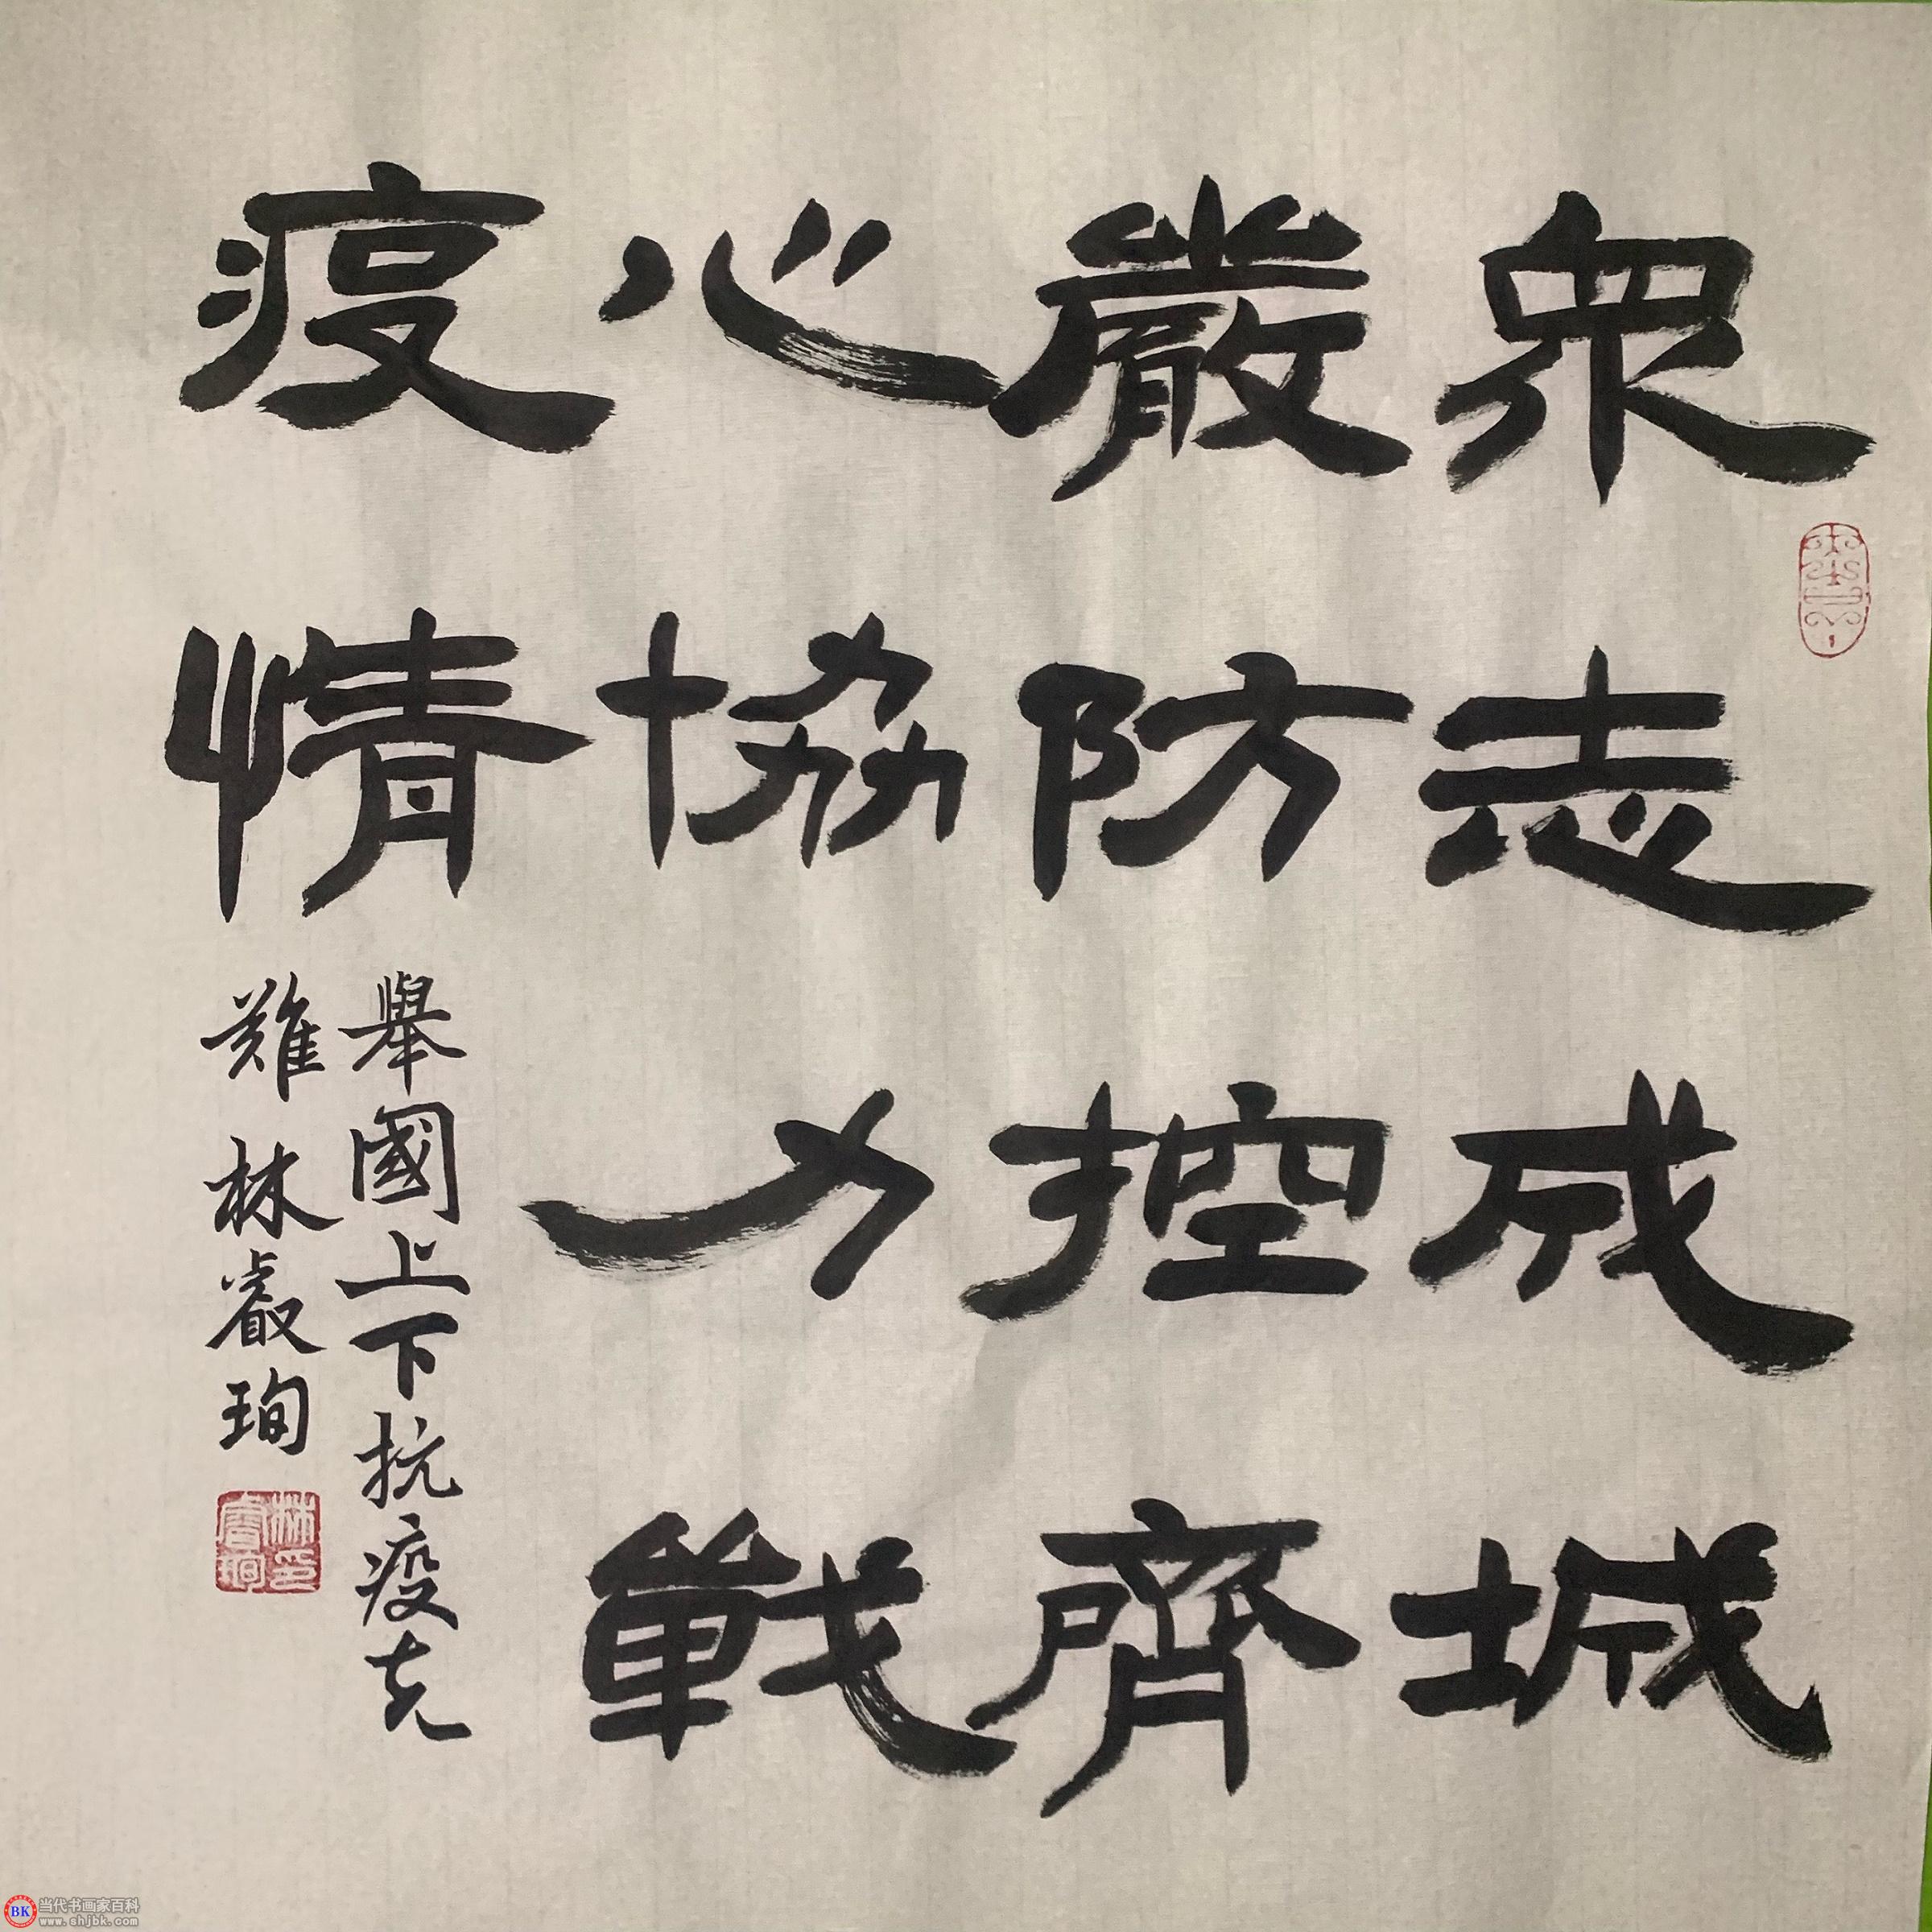 衆志成城
嚴防控齊
心協力戰
疫情
舉國上下抗疫克
難林叡珣
林印
睿珣
BK
当代书画家百科
www.shjbk.com